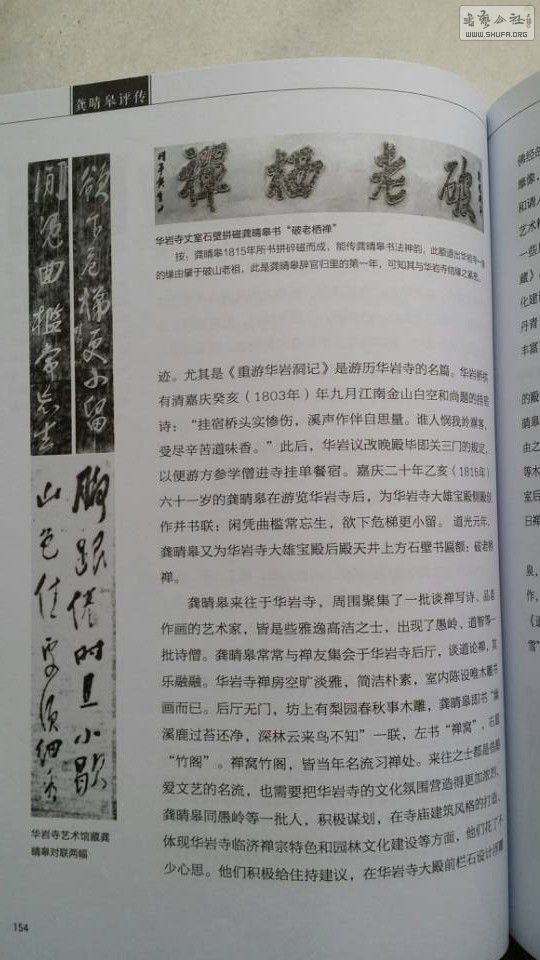 书艺公社
WWW.SHUFA.ORG
龚晴皋评传
破老栖禅
华岩寺丈室石壁拼磁龚晴皋书“破老栖禅”
按：龚晴皋1815年所书拼碎磁而成，能传龚晴皋书法神韵，此匾道出华岩寺
的缘由肇于破山老祖，此是龚晴皋辞官归里的第一年，可知其与华岩寺结缘之紧密。
欲下危梯更小留
闲凭曲槛常忘去
脚跟倦时且小歇
山色佳处须细看
华岩寺艺术馆藏龚
晴皋对联两幅
迹。尤其是《重游华岩洞记》是游历华岩寺的名篇。华岩
有清嘉庆癸亥（1803年）年九月江南金山白空和尚题的
诗：“挂宿桥头实惨伤，溪声作伴自思量。谁人悯我
受尽辛苦道味香。”此后，华岩议改晚殿毕团关三门的规定，
以便游方参学僧进寺挂单餐宿。嘉庆二十年乙亥（1816年）
六十一岁的龚晴皋在游览华岩寺后，为华岩寺大雄宝殿侧殿创
作并书联：闲凭曲槛常忘生，欲下危梯更小留。道光元年，
龚晴皋又为华岩寺大雄宝殿后殿天井上方石壁书匾额：破老栖
禅。
龚晴皋来往于华岩寺，周围聚集了一批谈禅写诗、品茗
作画的艺术家，皆是些雅逸高洁之士，出现了愚岭、道智等一
批诗僧。龚晴皋常常与禅友集会于华岩寺后厅，谈道论禅，其
乐融融。华岩寺禅房空旷淡雅，简洁朴素，室内陈设唯木雕书
画而已。后厅无门，坊上有梨园春秋事木雕，龚晴皋即书“
溪鹿过苔还净，深林云来鸟不知”一联，左书“禅窝”，右题
“竹阁”。禅窝竹阁，皆当年名流习禅处。来往之士都是些酷
爱文艺的名流，也需要把华岩寺的文化氛围营造得更加浓烈，
龚晴皋同愚岭等一批人，积极谋划，在寺庙建筑风格的打造、
体现华岩寺临济禅宗特色和园林文化建设等方面，他们花了不
少心思。他们积极给住持建议，在华岩寺大殿前栏石设计
154
佛经
摩像，
和请人
艺术
一些
藏》
化建
丹青
丰富
的殿
由之
等木
室后
日禅
泉，
作，
《
雪”